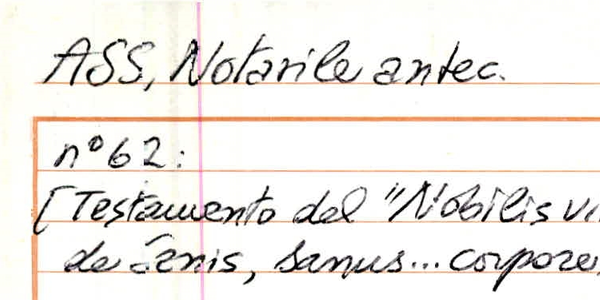 ASS, Notarile antec.
n° 62:
[Testamento del "Nobilis vi
de Zenis, sanus... corpore,